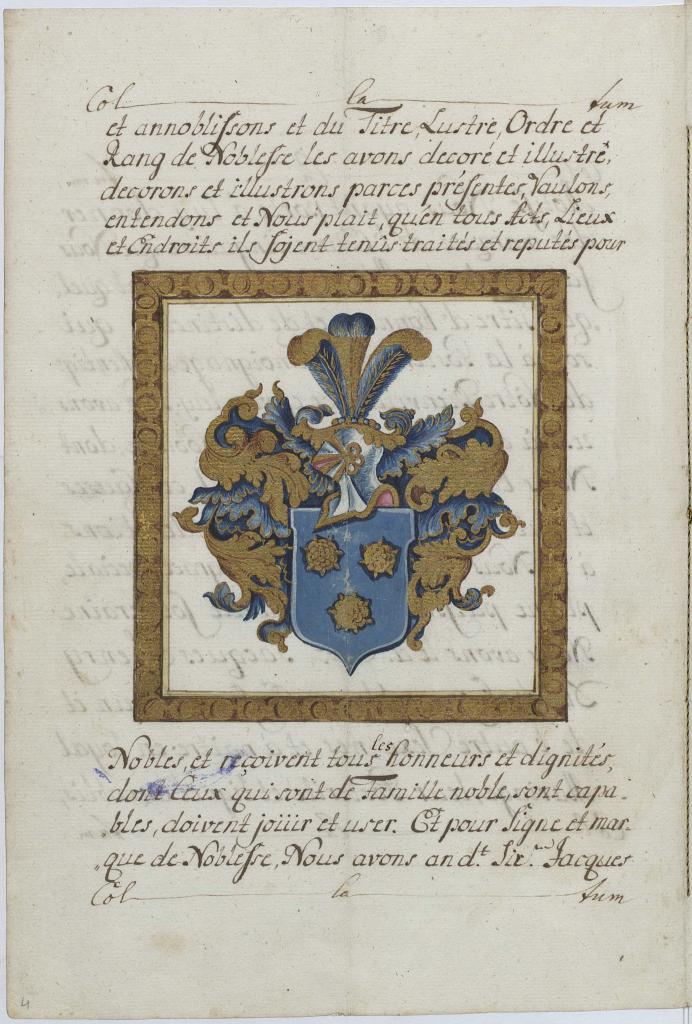 Col la tum
et annoblissons et du Titre, Lustre, Ordre et
Rang de Noblesse les avons decoré et illustré,
decorons et illustrons parces présentes, Vaulons,
entendons et Nous plait, qu'en tous Acts, Lieux
et Endroits ils sojent tenûs traités et reputés pour
Nobles, et reçoivent tous les honneurs et dignités,
dont Ceux qui sont de Famille noble, sont capa-
bles, doivent joüir et user. Et pour Signe et mar-
que de Noblesse, Nous avons au d.t Jacques
Col la tum
4